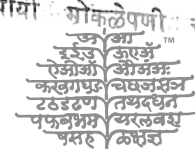 मोकळेपणी
अ आ TM
इईउ ऊएॲ
ऐओऑ औअंअः
कखगघङ चछजझञ
टठडढण तथदधन
पफबभम यरलवश
षसह ळक्षज्ञ